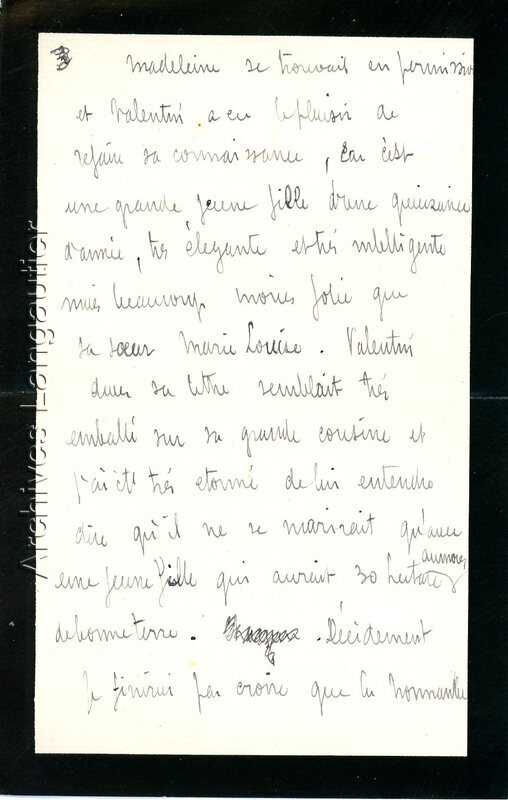 Madeleine se trouvait en permission
et Valentin a eu le plaisir de
refaire sa connaissance, car c'est
une grande jeune fille d'une quinzaine
d'année, très élégante et très intelligente
mais beaucoup moins jolie que
sa sœur Marie Louise. Valentin
dans sa lettre semblait très
emballé sur sa grande cousine et
j'ai été très etonné de lui entendre
dire qu'il ne se marirait qu'avec
une jeune fille qui aurait 30 hectares au moins
de bonne terre. Décidement
je finirai par croire que la Normandie
Archives Langautier